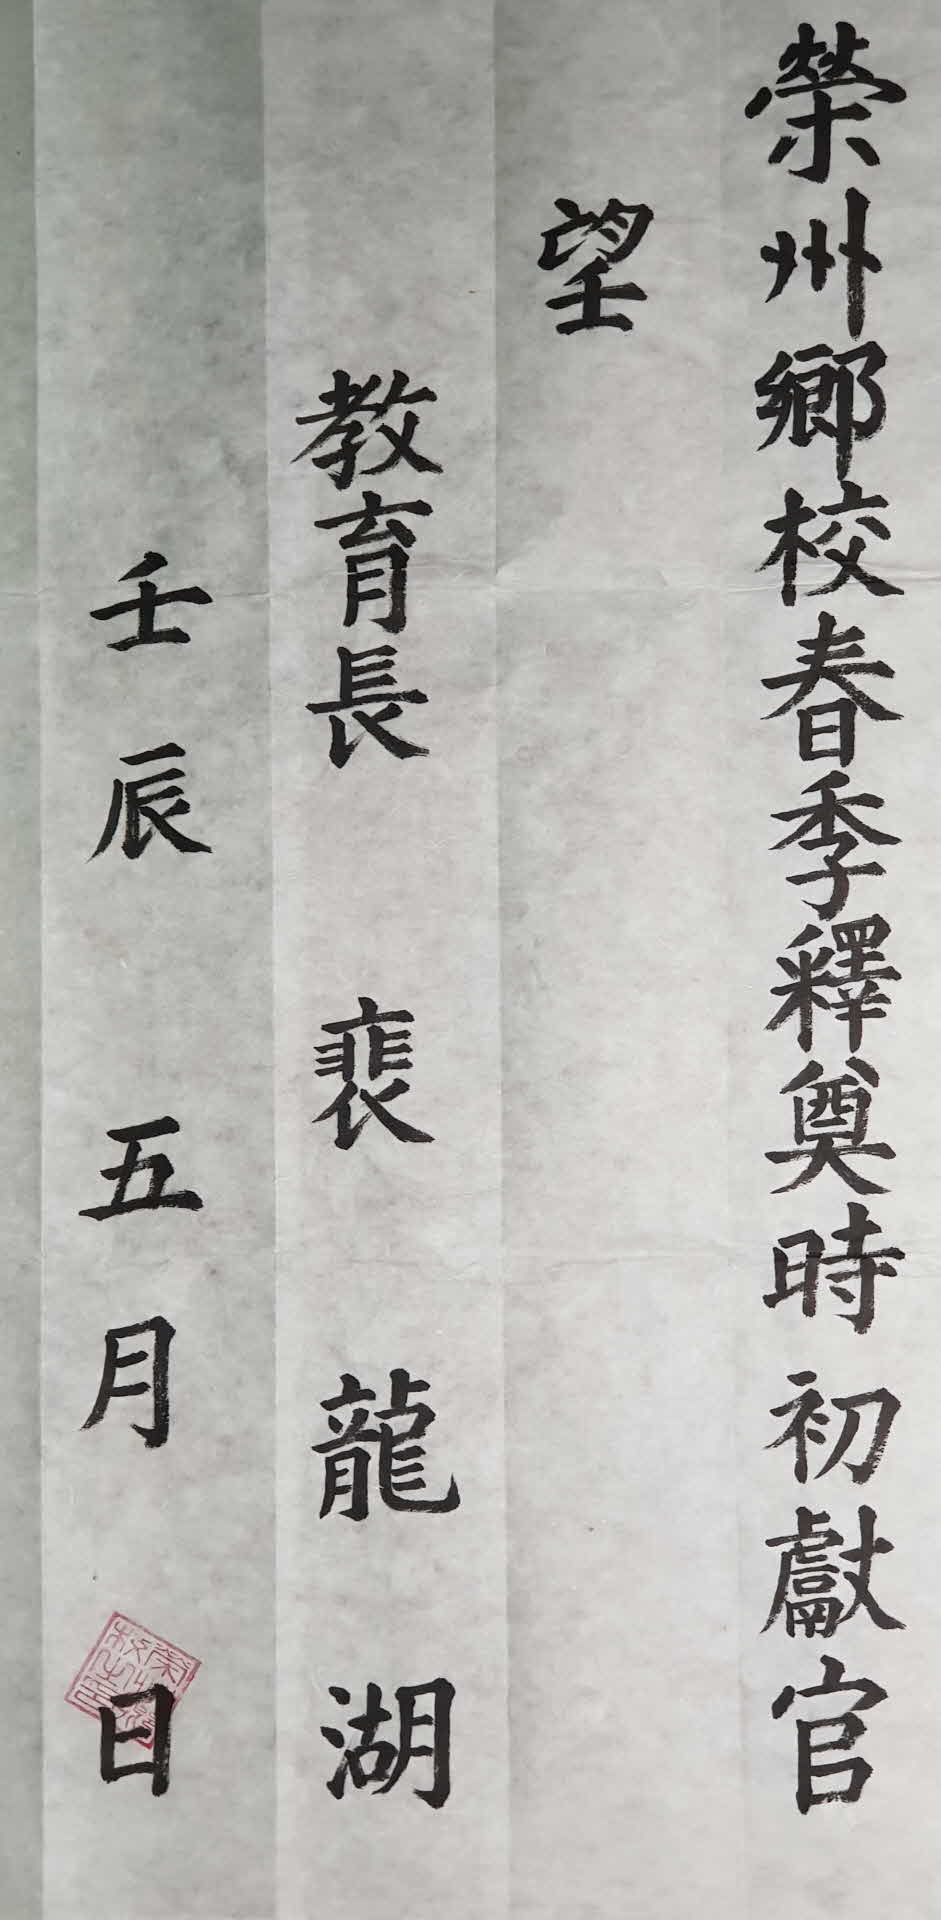 榮州鄕校春季釋奠時初獻官
望
敎育長 裵龍湖
壬辰五月日